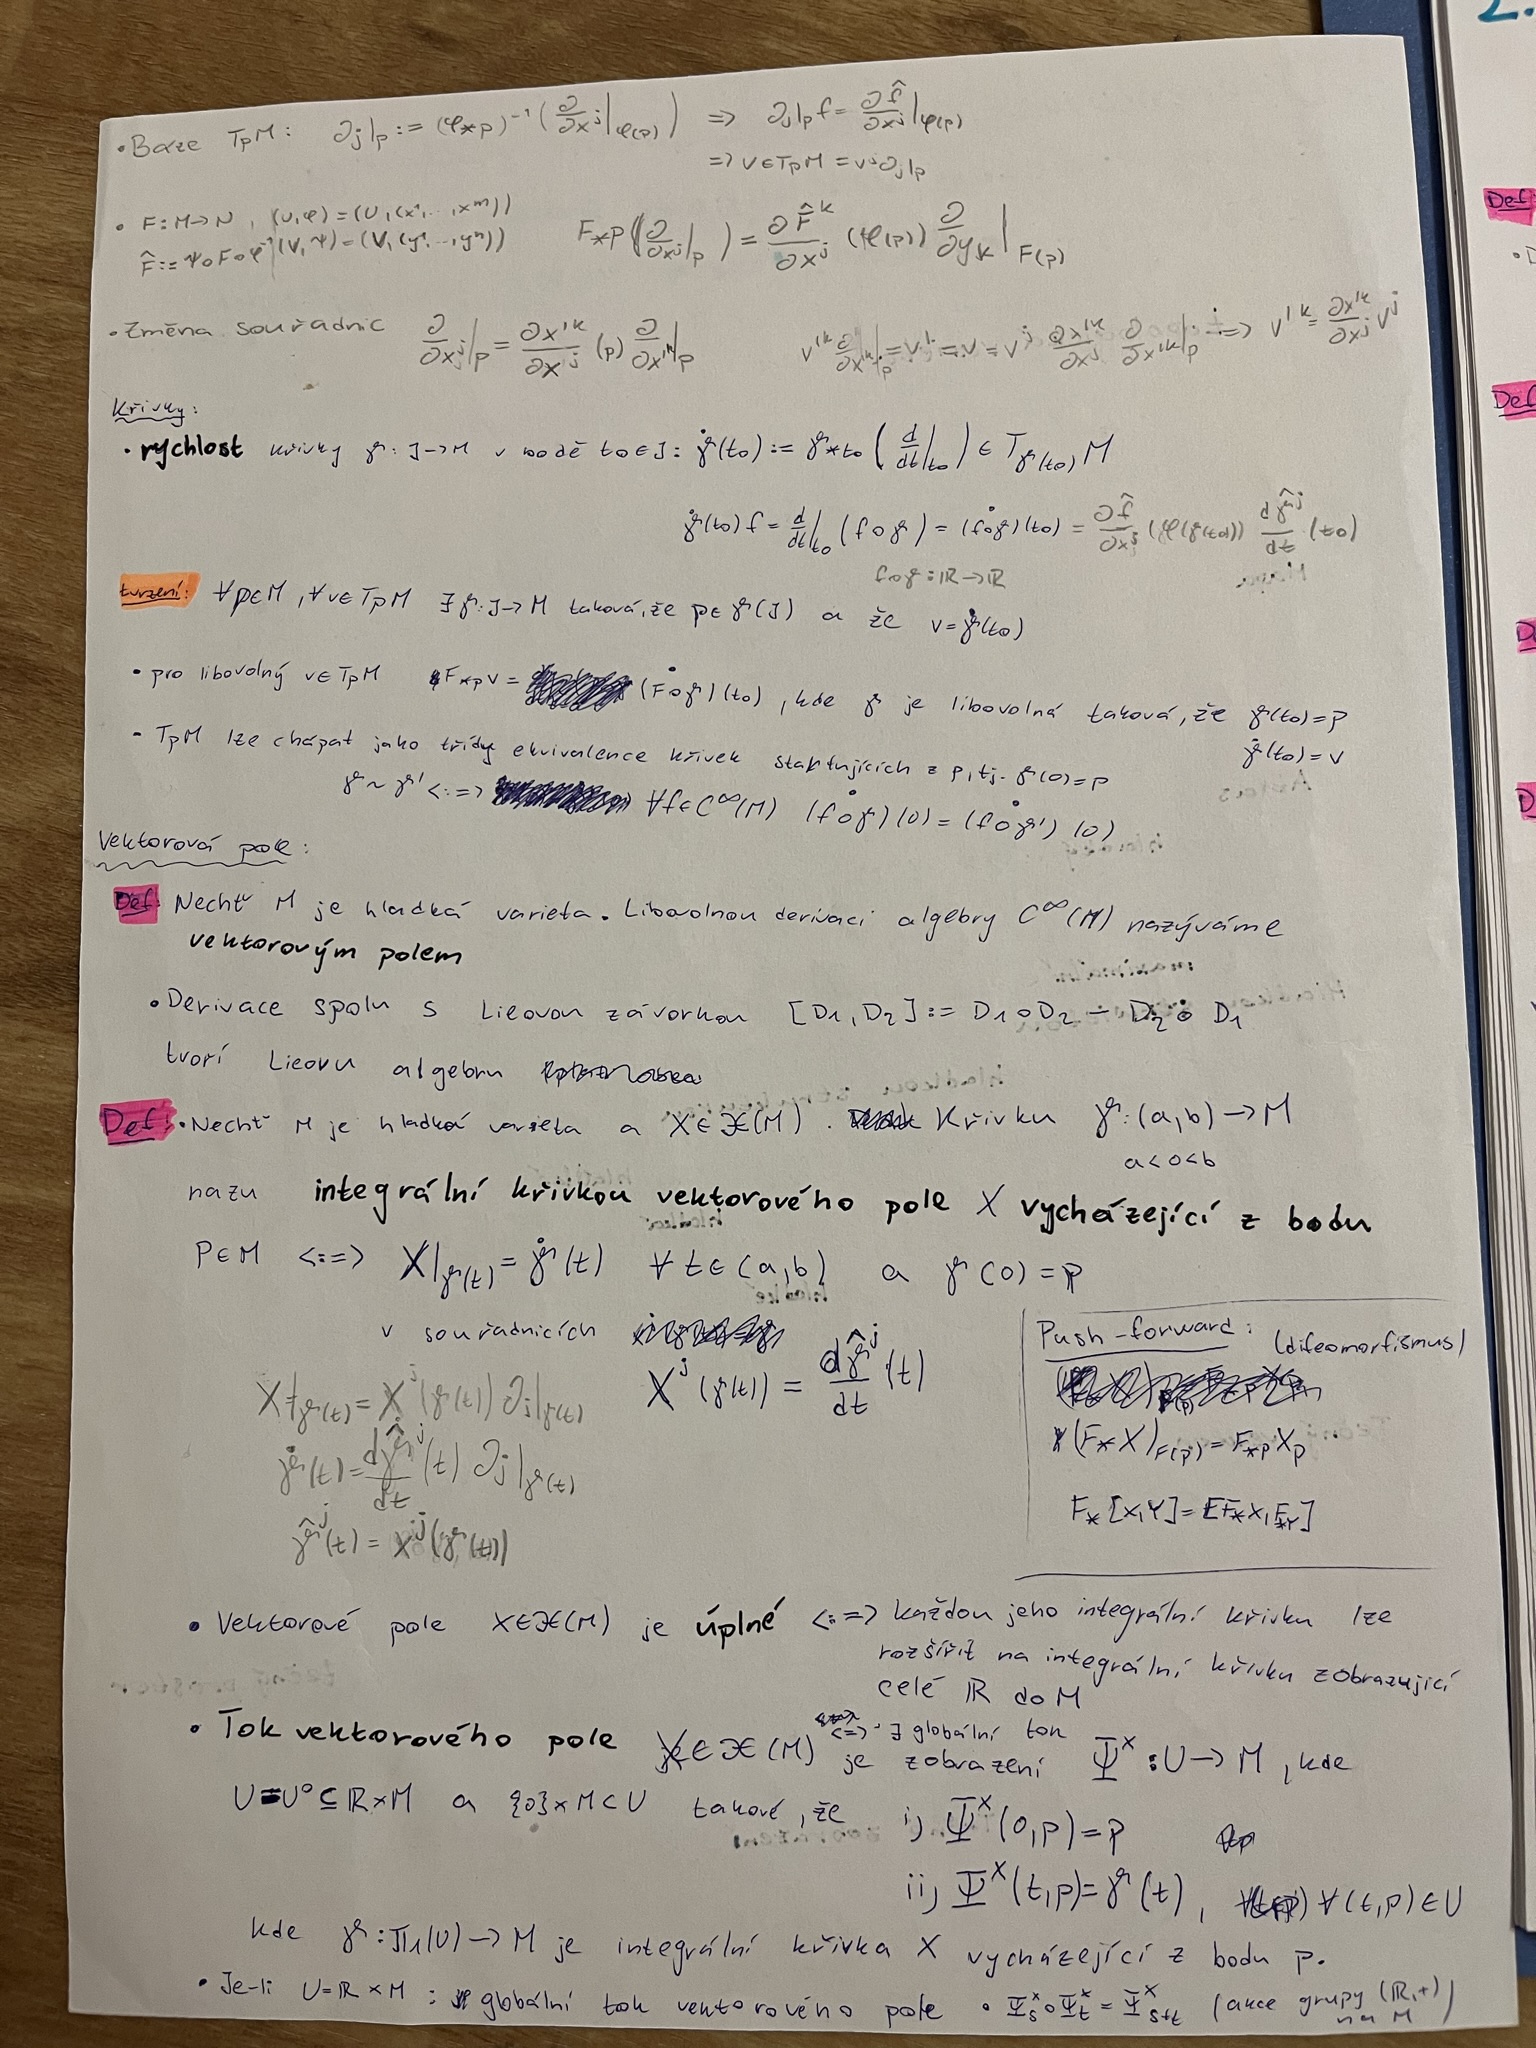 • Báze TpM: ∂j|p := (φ*p)⁻¹ (∂/∂xʲ|φ(p)) => ∂j|p f = ∂f̂/∂xʲ|φ(p)
=> v∈TpM = vʲ∂j|p
• F: M→N, (U,φ) = (U,(x¹,...,xᵐ))
F̂ := ψ∘F∘φ⁻¹ (V,ψ) = (V,(y¹,...,yⁿ))
F*p (∂/∂xʲ|p) = ∂F̂ᵏ/∂xʲ (φ(p)) ∂/∂yk|F(p)
• Změna souřadnic ∂/∂xʲ|p = ∂x'ᵏ/∂xʲ (p) ∂/∂x'ᵏ|p v'ᵏ ∂/∂x'ᵏ|p = v = vʲ ∂x'ᵏ/∂xʲ ∂/∂x'ᵏ|p => v'ᵏ = ∂x'ᵏ/∂xʲ vʲ
Křivky:
• rychlost křivky γ: J→M v bodě t0∈J: γ̇(t0) := γ*t0 (d/dt|t0) ∈ Tγ(t0)M
γ̇(t0) f = d/dt|t0 (f∘γ) = (f∘γ)˙(t0) = ∂f̂/∂xʲ (φ(γ(t0))) dγ̂ʲ/dt (t0)
f∘γ: ℝ→ℝ
tvrzení: ∀p∈M, ∀v∈TpM ∃γ: J→M taková, že p∈γ(J) a že v=γ̇(t0)
• pro libovolný v∈TpM F*p v = (F∘γ)˙(t0), kde γ je libovolná taková, že γ(t0)=p
γ̇(t0)=v
• TpM lze chápat jako třídy ekvivalence křivek startujících z p, tj. γ(0)=p
γ~γ' <:=> ∀f∈C∞(M) (f∘γ)˙(0) = (f∘γ')˙(0)
Vektorová pole:
Def: Nechť M je hladká varieta. Libovolnou derivaci algebry C∞(M) nazýváme
vektorovým polem
• Derivace spolu s Lieovou závorkou [D1, D2] := D1∘D2 − D2∘D1
tvoří Lieovu algebru
Def: • Nechť M je hladká varieta a X∈𝔛(M). Křivku γ: (a,b) → M
a<0<b
nazu integrální křivkou vektorového pole X vycházející z bodu
p∈M <:=> X|γ(t) = γ̇(t) ∀t∈(a,b) a γ(0)=p
v souřadnicích Xʲ(γ(t)) = dγ̂ʲ/dt (t)
X|γ(t) = Xʲ(γ(t)) ∂j|γ(t)
γ̇(t) = dγ̂ʲ/dt (t) ∂j|γ(t)
γ̂ʲ(t) = Xʲ(γ(t))
Push-forward: (difeomorfismus)
(F*X)F(p) = F*p Xp
F*[X,Y] = [F*X, F*Y]
• Vektorové pole X∈𝔛(M) je úplné <:=> každou jeho integrální křivku lze
rozšířit na integrální křivku zobrazující
celé ℝ do M
<=> ∃ globální tok
• Tok vektorového pole X∈𝔛(M) je zobrazení Ψˣ: U→M, kde
U=U⁰⊆ℝ×M a {0}×M⊂U takové, že i) Ψˣ(0,p)=p
ii) Ψˣ(t,p)=γ(t), ∀(t,p)∈U
kde γ: π1(U)→M je integrální křivka X vycházející z bodu p.
• Je-li U=ℝ×M : globální tok vektorového pole • Ψˣs∘Ψˣt = Ψˣs+t (akce grupy (ℝ,+)
na M)
2.
Def:
Def